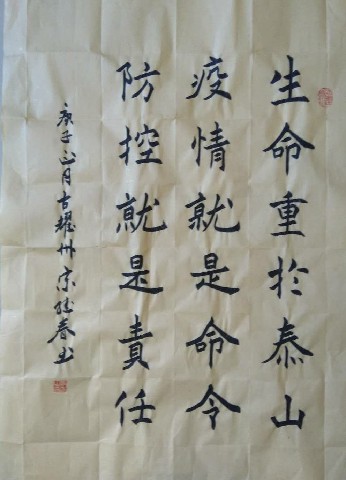 生命重於泰山
疫情就是命令
防控就是責任
庚子正月古耀州宗陆春书